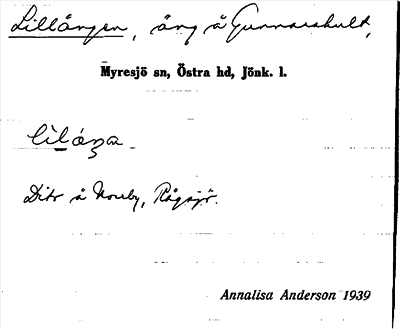 Lillängen, äng å Gunnarshult,
Myresjö sn, Östra hd, Jönk. l.
Dito å Norrby, Rågsjö.
Annalisa Anderson 1939